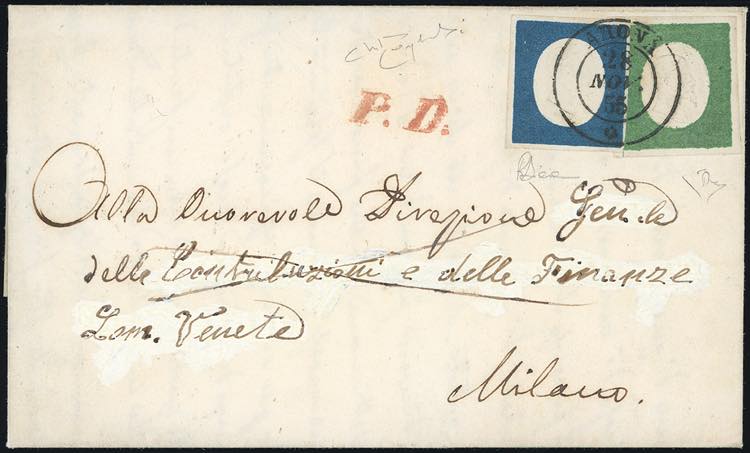 P. D.
28
NOV.
55
Alla Onorevole Direzione Gen.le
delle Contribuzioni e delle Finanze
Lom. Venete
Milano.